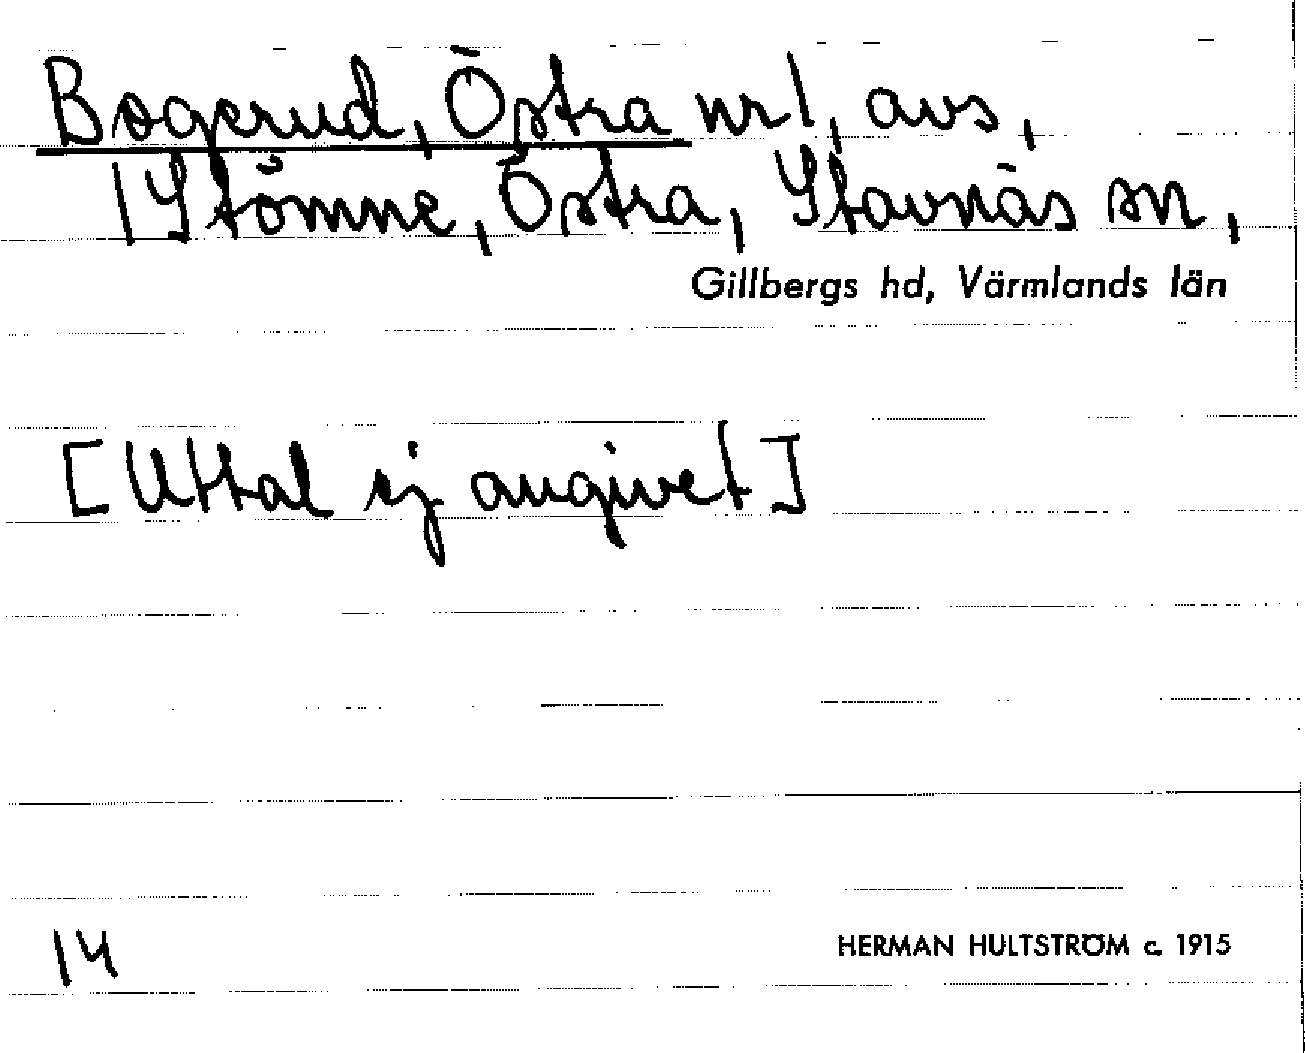 Bogerud, Östra nr 1, avs,
1 Stömne, Östra, Stavnäs sn,
Gillbergs hd, Värmlands län
[Uttal ej angivet]
14
HERMAN HULTSTRÖM c. 1915